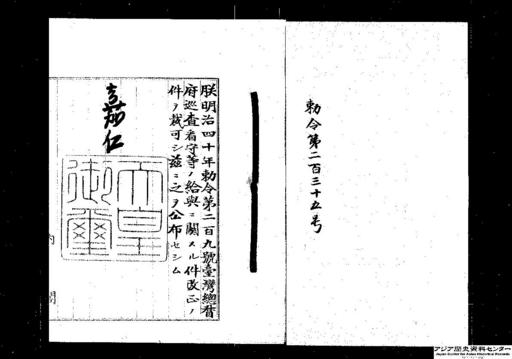 勅令第二百三十五号
朕明治四十年勅令第二百九號臺灣總督
府巡査看守等ノ給與ニ關スル件改正ノ
件ヲ裁可シ茲ニ之ヲ公布セシム
嘉仁
天皇
御璽
内閣
アジア歴史資料センター
Japan Center for Asian Historical Records